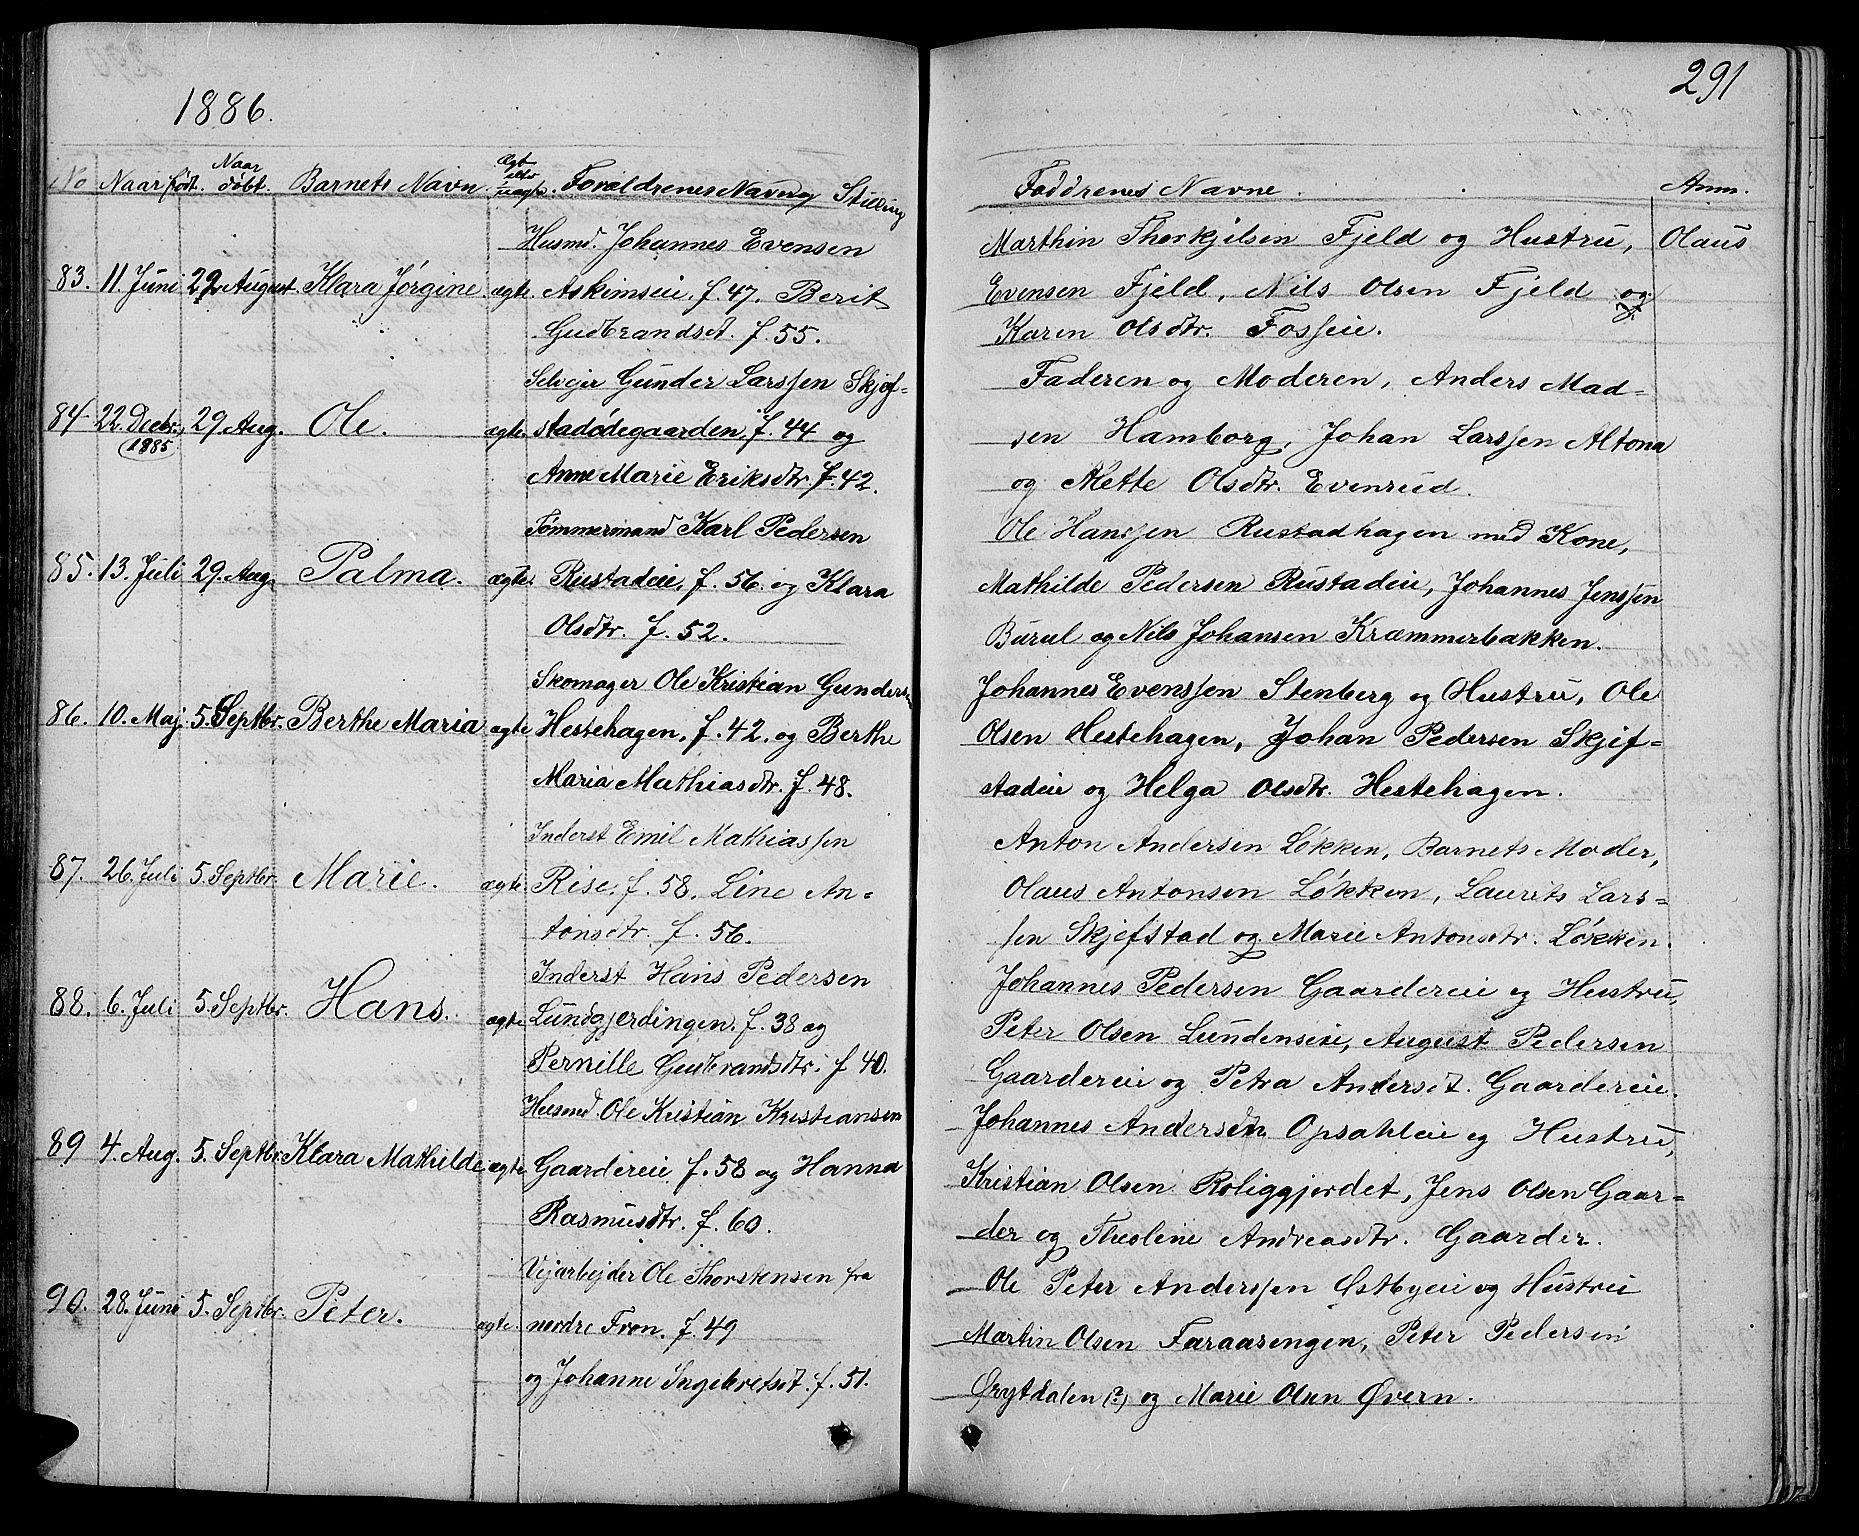 291
1886.
No Naar født. Naar døbt. Barnets Navn. Ægt eller uægte. Forældrenes Navn og Stilling
Husmd. Johannes Evensen
83. 11 Juni 29 August. Klara Jørgine ægte. Askimseie, f. 47. Berit
Gudbrandsd. f. 55.
Selveier Gunder Larssen Skjef-
84 22. Decbr. 1885 29. Aug. Ole. ægte. stadødegaarden, f. 44 og
Anne Marie Eriksdtr. f. 42.
Tømmermand Karl Pedersen
85. 13. Juli 29. Aug. Palma. ægte. Rustadeie, f. 56. og Klara
Olsdtr. f. 52.
Skomager Ole Kristian Gunders
86. 10. Maj 5. Septbr. Berthe Maria ægte Hestehagen, f. 42. og Berthe
Maria Mathiasdtr. f. 48.
Inderst Emil Mathiassen
87. 26. Juli 5. Septbr. Marie. ægte. Rise, f. 58. Line An-
tonsdtr. f. 56.
Inderst Hans Pedersen
88. 6. Juli 5. Septbr. Hans. ægte. Lundgjerdingen. f. 38 og
Pernille Gudbrandsdtr. f 40.
Husmd. Ole Kristian Kristiansen
89 4. Aug. 5. Septbr. Klara Mathilde ægte Gaardereie f. 58 og Hanna
Rasmusdtr. f. 60.
Vejarbejder Ole Thorstensen fra
90. 28. Juni 5. Septbr. Peter. ægte. nordre Fron. f. 49
og Johanne Ingebretsd. f. 51.
Faddrenes Navne. Anm.
Marthin Thorkjilsen Fjeld og Hustru, Olaus
Evensen Fjeld, Nils Olsen Fjeld og
Karen Olsdtr. Fosseie.
Faderen og Moderen, Anders Mad-
sen Hamborg, Johan Larssen Altona
og Mette Olsdtr. Evenrud.
Ole Hanssen Rustadhagen med Kone,
Mathilde Pedersen Rustadeie, Johannes Jenssen
Burul og Nils Johansen Kræmmerbakken.
Johannes Evenssen Stenberg og Hustru, Ole
Olsen Hestehagen, Johan Pedersen Skjef-
stadeie og Helga Olsdtr. Hestehagen.
Anton Andersen Løkken, Barnets Moder,
Olaus Antonsen Løkken, Laurits Lars-
sen Skjefstad og Marie Antonsdtr. Løkken.
Johannes Pedersen Gaardereie og Hustru,
Peter Olsen Lundenseie, August Pedersen
Gaardereie og Petra Andersd. Gaardereie.
Johannes Andersen Opsahleie og Hustru,
Kristian Olsen Roliggjordet, Jens Olsen Gaar-
der og Theoline Andreasdtr. Gaarder.
Ole Peter Anderssen Østbyeie og Hustru
Martin Olsen Faraasengen, Peter Pedersen
Ørytdalen (?) og Marie Olsen Øvern.